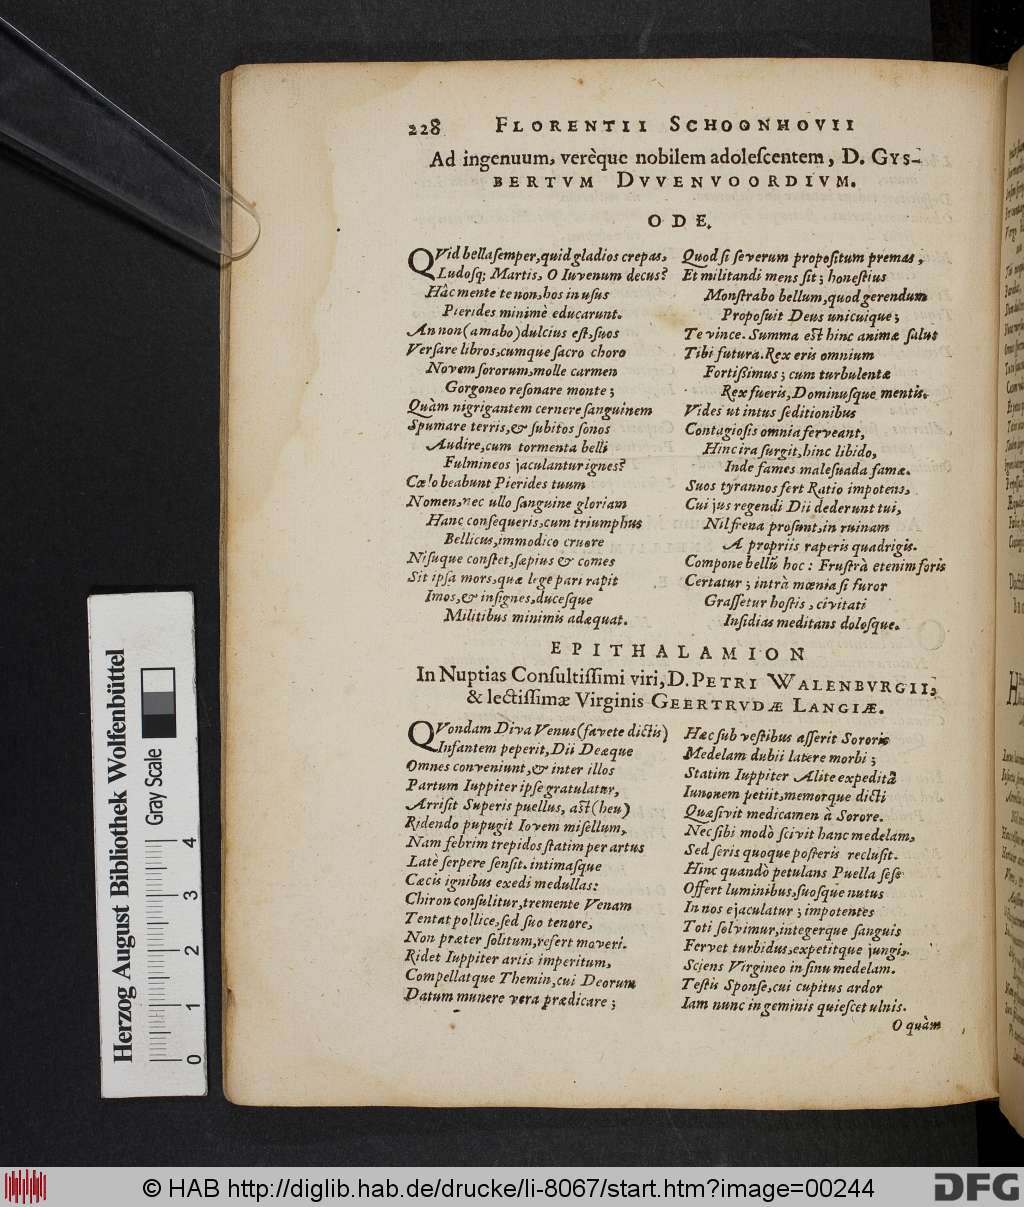 228 FLORENTII SCHOONHOVII
Ad ingenuum, verèque nobilem adolescentem, D. GYS-
BERTVM DVVENVOORDIVM.
ODE.
QVid bella semper, quid gladios crepas,
Ludosq; Martis, O Iuvenum decus?
Hâc mente te non, hos in usus
Pierides minimè educarunt.
An non (amabo) dulcius est, suos
Versare libros, cumque sacro choro
Novem sororum, molle carmen
Gorgoneo resonare monte;
Quàm nigrigantem cernere sanguinem
Spumare terris, & subitos sonos
Audire, cum tormenta belli
Fulmineos jaculantur ignes?
Cœlo beabunt Pierides tuum
Nomen, nec ullo sanguine gloriam
Hanc consequeris, cum triumphus
Bellicus, immodico cruore
Nisuque constet, sæpius & comes
Sit ipsa mors, quæ lege pari rapit
Imos, & insignes, ducesque
Militibus minimis adæquat.
Quod si severum propositum premas,
Et militandi mens sit; honestius
Monstrabo bellum, quod gerendum
Proposuit Deus unicuique;
Te vince. Summa est hinc animæ salus
Tibi futura. Rex eris omnium
Fortissimus; cum turbulentæ
Rex fueris, Dominusque mentis.
Vides ut intus seditionibus
Contagiosis omnia ferveant,
Hinc ira surgit, hinc libido,
Inde fames malesuada famæ.
Suos tyrannos fert Ratio impotens,
Cui jus regendi Dii dederunt tui,
Nil frena prosunt, in ruinam
A propriis raperis quadrigis.
Compone bellũ hoc: Frustrà etenim foris
Certatur; intrà mœnia si furor
Grassetur hostis, civitati
Insidias meditans dolosque.
EPITHALAMION
In Nuptias Consultissimi viri, D. PETRI WALENBVRGII,
& lectissimæ Virginis GEERTRVDÆ LANGIÆ.
QVondam Diva Venus (favete dictis)
Infantem peperit, Dii Deæque
Omnes conveniunt, & inter illos
Partum Iuppiter ipse gratulatur,
Arrisit Superis puellus, ast (heu)
Ridendo pupugit Iovem misellum,
Nam febrim trepidos statim per artus
Latè serpere sensit. intimasque
Cæcis ignibus exedi medullas:
Chiron consulitur, tremente Venam
Tentat pollice, sed suo tenore,
Non præter solitum, refert moveri.
Ridet Iuppiter artis imperitum,
Compellatque Themin, cui Deorum
Datum munere vera prædicare;
Hæc sub vestibus asserit Sororis
Medelam dubii latere morbi;
Statim Iuppiter Alite expeditâ
Iunonem petiit, memorque dicti
Quæsivit medicamen à Sorore.
Nec sibi modò scivit hanc medelam,
Sed seris quoque posteris reclusit.
Hinc quandò petulans Puella sese
Offert luminibus, suosque nutus
In nos ejaculatur; impotentes
Toti solvimur, integerque sanguis
Fervet turbidus, expetitque jungi,
Sciens Virgineo in sinu medelam.
Testis Sponse, cui cupitus ardor
Iam nunc in geminis quiescet ulnis.
O quàm
Herzog August Bibliothek Wolfenbüttel
Gray Scale
0 1 2 3 4
© HAB http://diglib.hab.de/drucke/li-8067/start.htm?image=00244
DFG